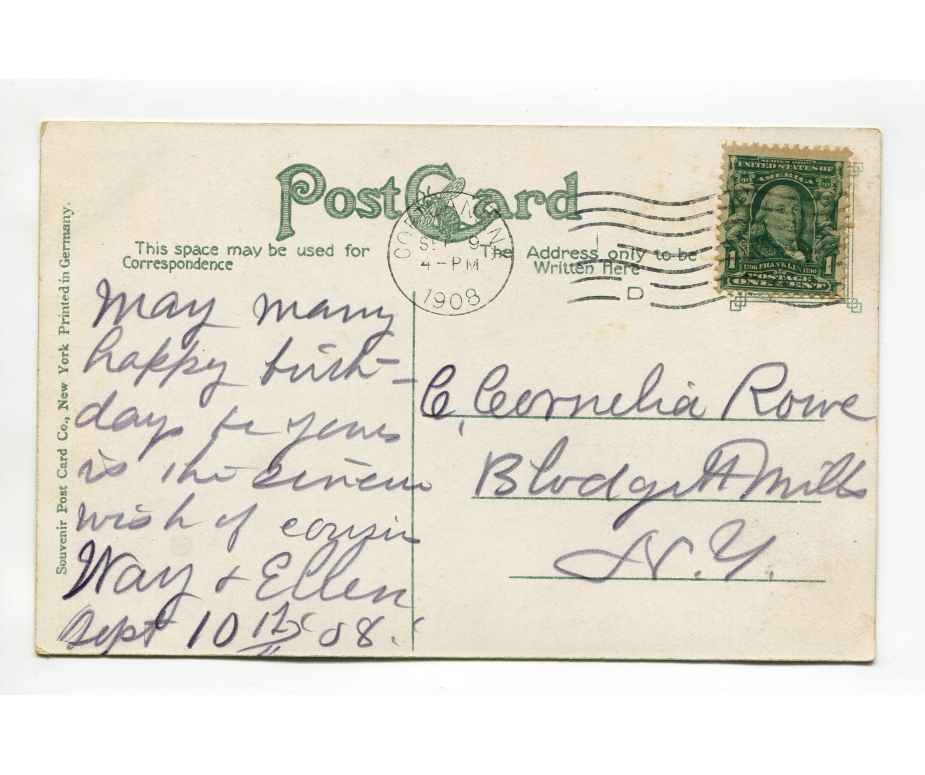 Post Card
This space may be used for
Correspondence
The Address only to be
Written Here
SEP 9
4-PM
1908
D
SERIES 1902
UNITED STATES OF
AMERICA
1 FRANKLIN 1
POSTAGE
ONE CENT
Souvenir Post Card Co., New York Printed in Germany.
May many
happy birth-
days be yours
is the sincere
wish of cousin
Way & Ellen
Sept 10 08.
C. Cornelia Rowe
Blodgett Mills
N.Y.